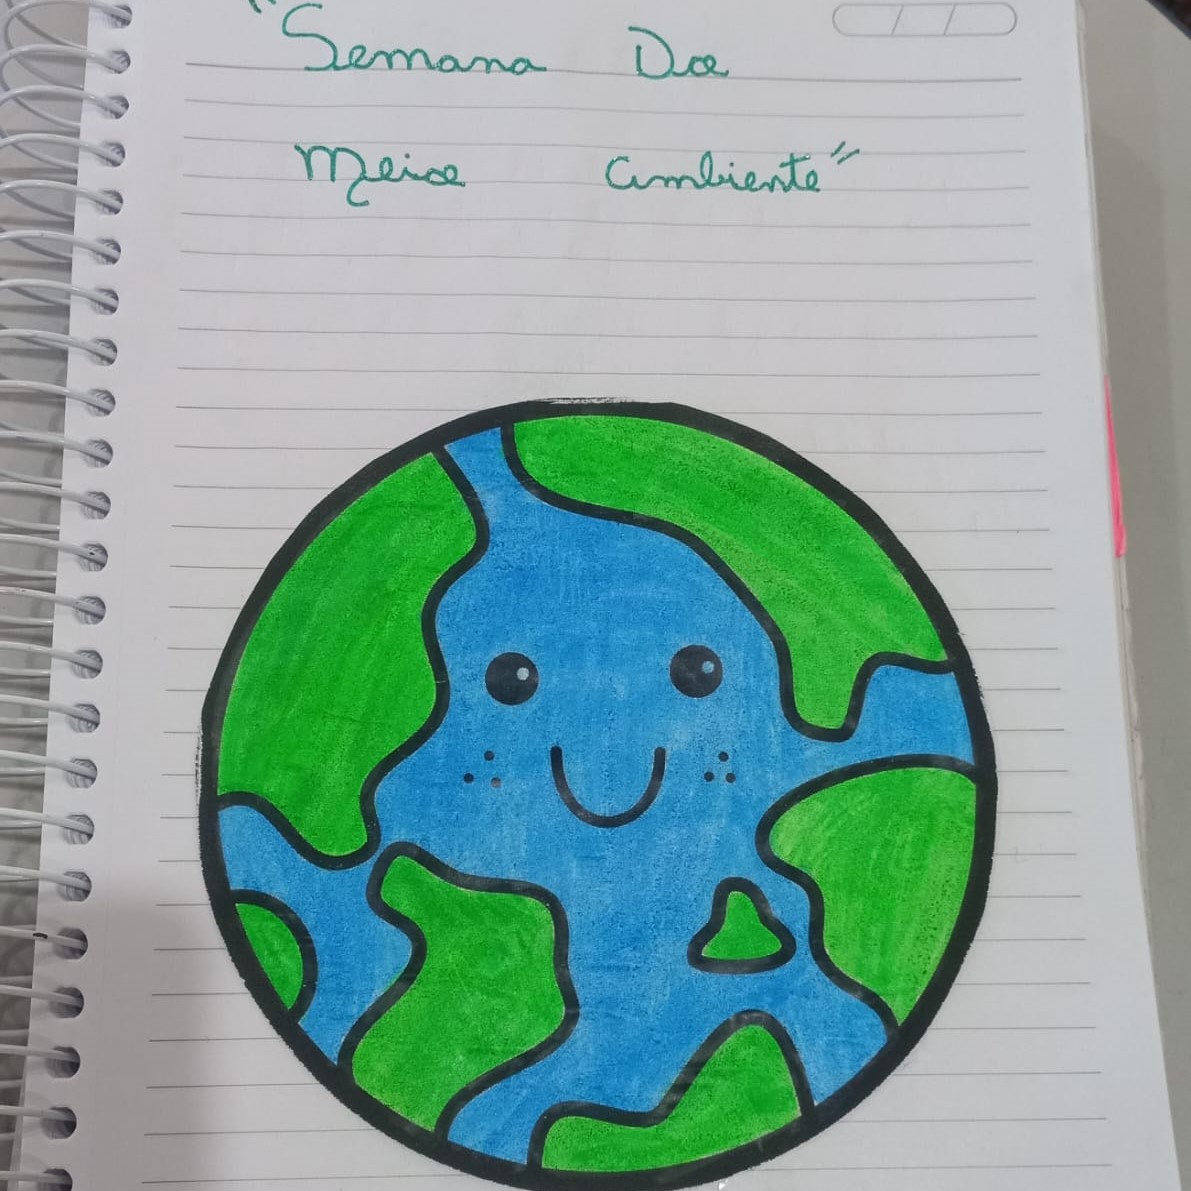 "Semana Do
Meio Ambiente"